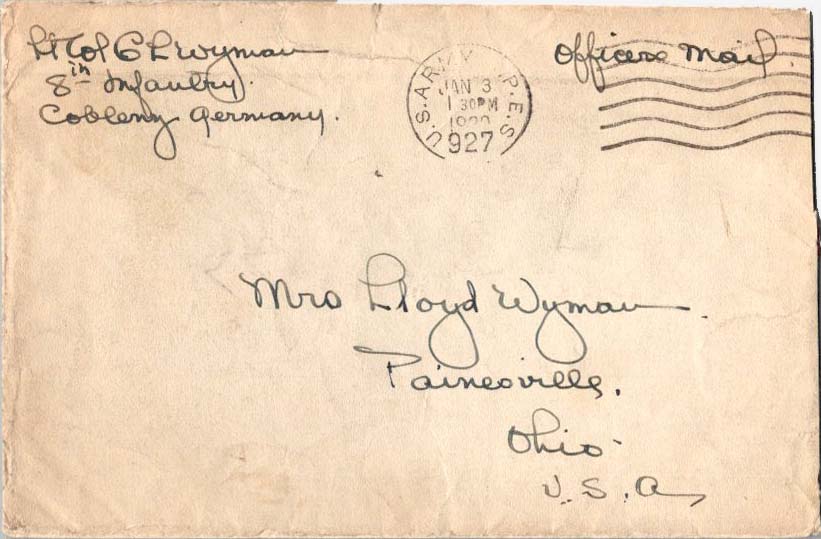 Lt Col C L Wyman
8th Infantry.
Coblenz Germany.
Officers Mail.
U.S. ARMY P.E.S.
JAN 3
1 30PM
927
Mrs Lloyd Wyman.
Painesville,
Ohio
U.S.A